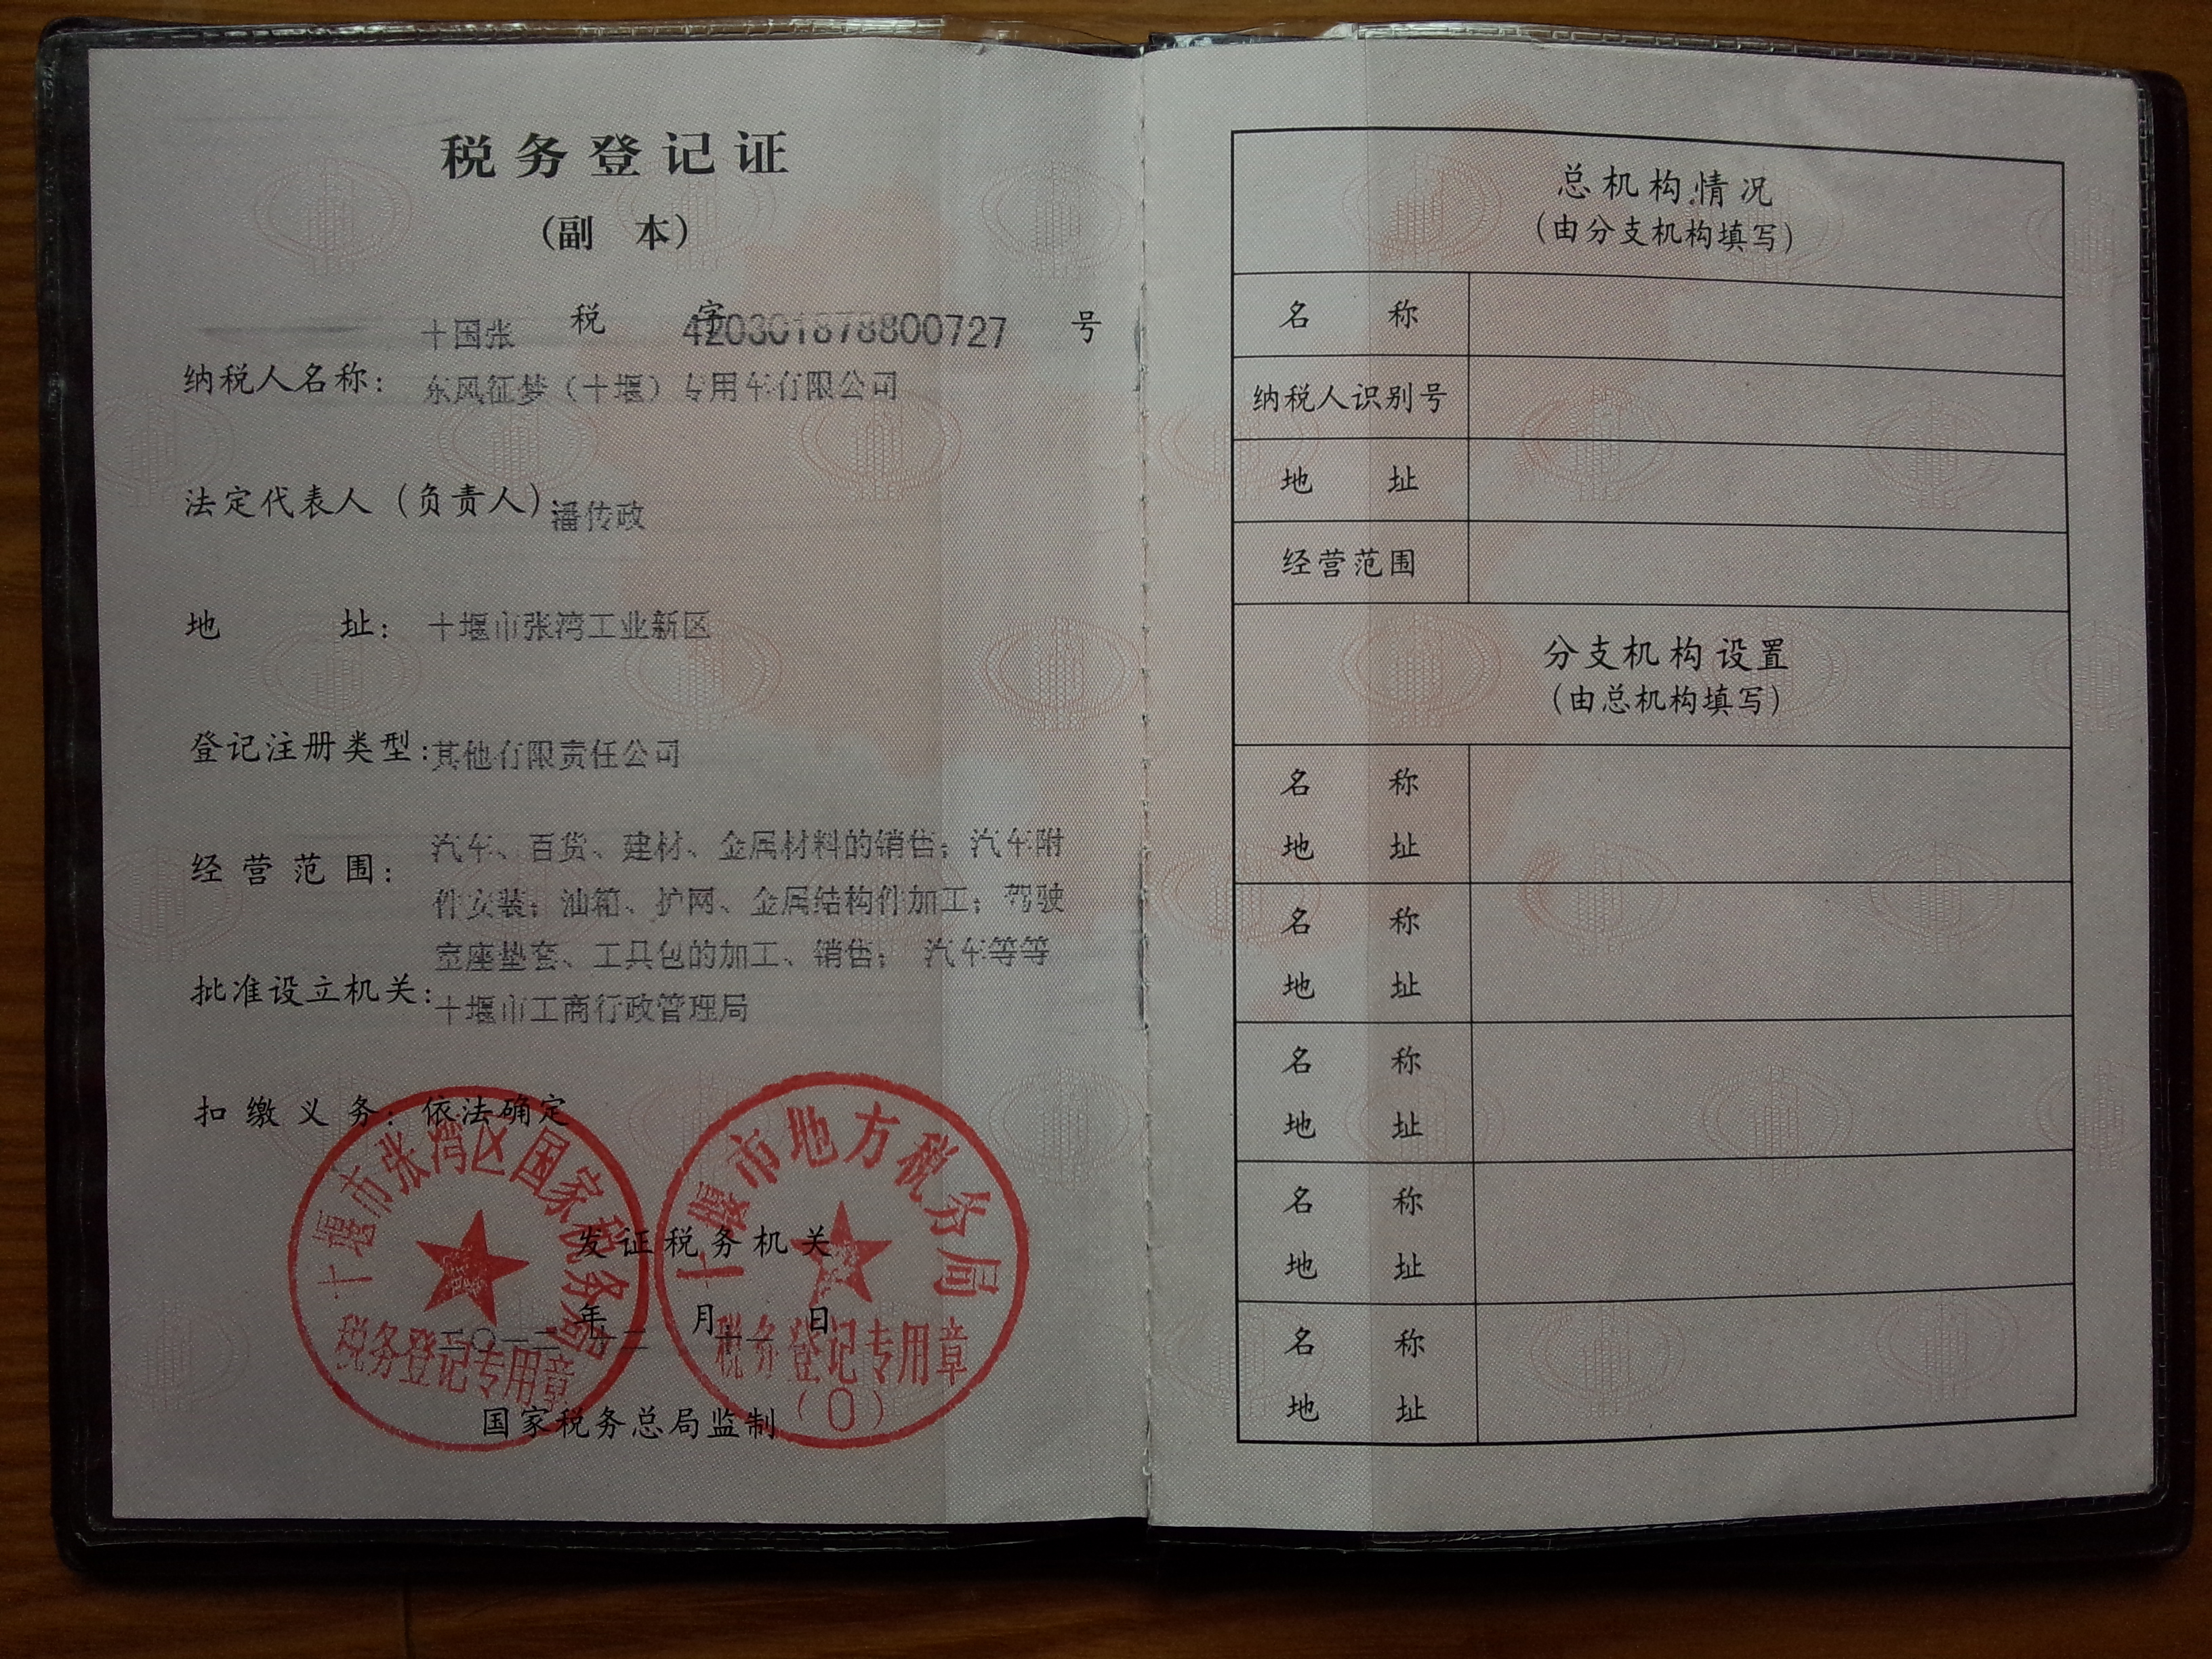 税务登记证
(副 本)
十国张 税 字 420301878800727 号
纳税人名称: 东风征梦(十堰)专用车有限公司
法定代表人(负责人) 潘传政
地 址: 十堰市张湾工业新区
登记注册类型: 其他有限责任公司
经营范围: 汽车、百货、建材、金属材料的销售;汽车附
件安装;油箱、护网、金属结构件加工;驾驶
室座垫套、工具包的加工、销售; 汽车等等
批准设立机关: 十堰市工商行政管理局
扣缴义务: 依法确定
十堰市张湾区国家税务局
税务登记专用章
十堰市地方税务局
税务登记专用章
(0)
发证税务机关
年 月 日
二〇一二 十二 十一
国家税务总局监制
总机构情况
(由分支机构填写)
名 称
纳税人识别号
地 址
经营范围
分支机构设置
(由总机构填写)
名 称
地 址
名 称
地 址
名 称
地 址
名 称
地 址
名 称
地 址